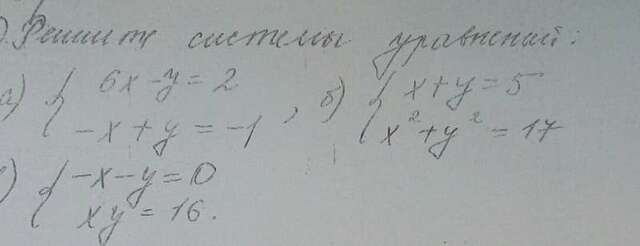 ) Решите системы уравнений:
а) { 6x-y=2 , б) { x+y=5
-x+y=-1 x²+y²=17
в) { -x-y=0
xy=16.